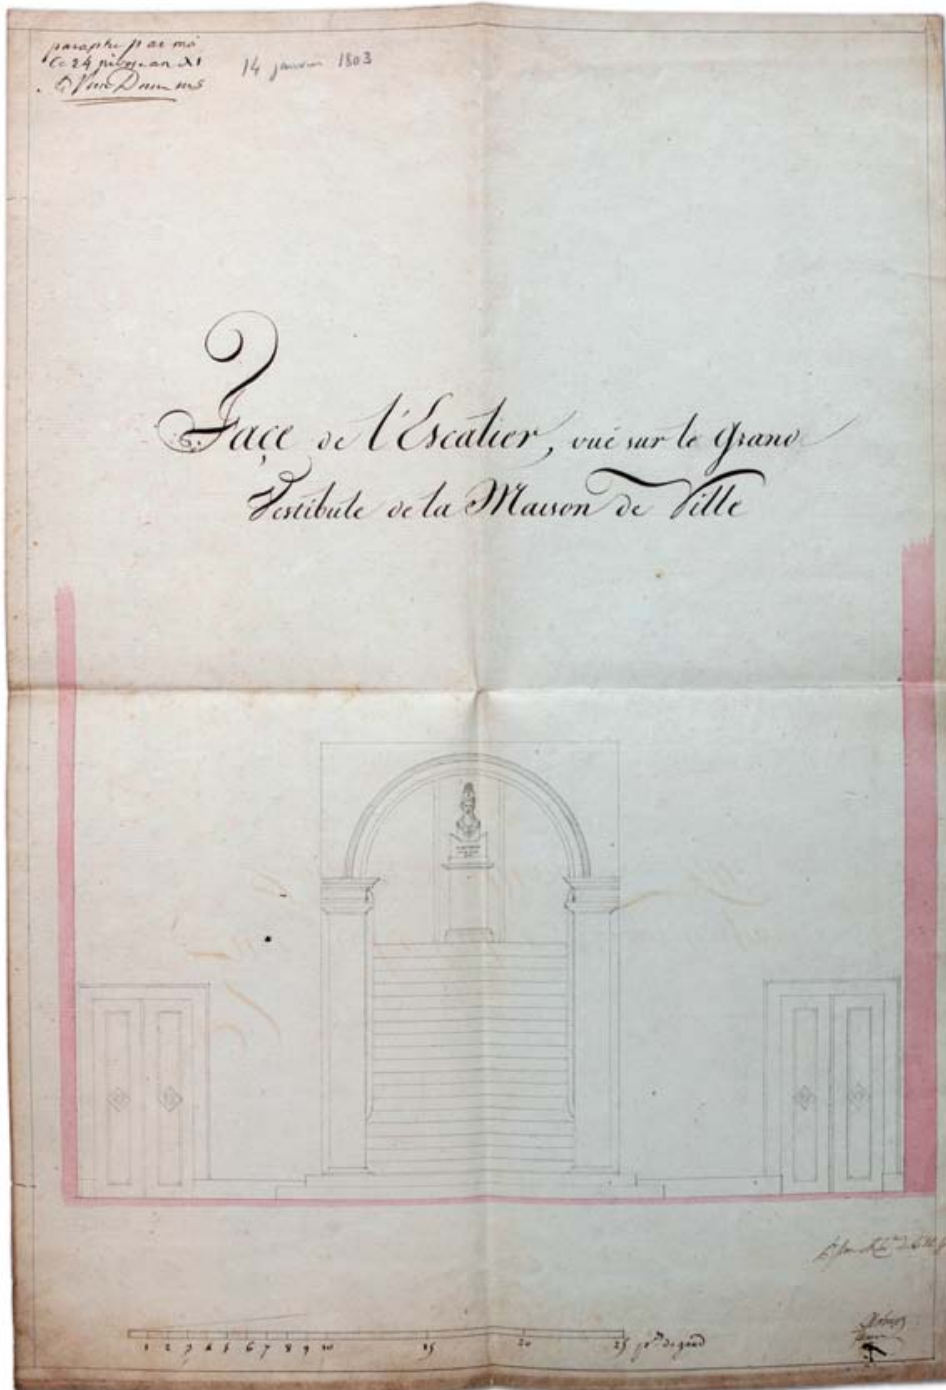 paraphé par moi
le 24 nivose an XI
14 janvier 1803
Façe de l'Escalier, vué sur le Grand
Vestibule de la Maison de Ville
1 2 3 4 5 6 7 8 9 10 15 20 25 pds de gand